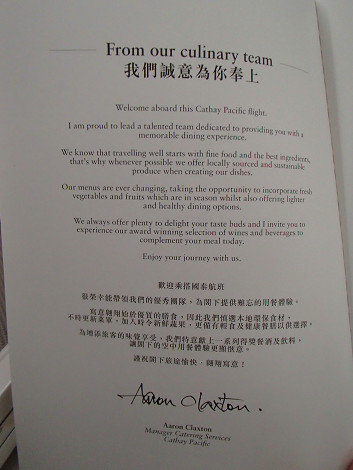 From our culinary team
我們誠意為你奉上
Welcome aboard this Cathay Pacific flight.
I am proud to lead a talented team dedicated to providing you with a
memorable dining experience.
We know that travelling well starts with fine food and the best ingredients,
that's why whenever possible we offer locally sourced and sustainable
produce when creating our dishes.
Our menus are ever changing, taking the opportunity to incorporate fresh
vegetables and fruits which are in season whilst also offering lighter
and healthy dining options.
We always offer plenty to delight your taste buds and I invite you to
experience our award winning selection of wines and beverages to
complement your meal today.
Enjoy your journey with us.
歡迎乘搭國泰航班
很榮幸能帶領我們的優秀團隊、為閣下提供難忘的用餐體驗。
寫意翱翔始於優質的膳食，因此我們慎選本地環保食材，
不時更新菜單，加入時令新鮮蔬果，更備有輕食及健康餐膳以供選擇。
為增添旅客的味覺享受，我們特意獻上一系列得獎餐酒及飲料，
讓閣下的空中用餐體驗更顯愜意。
謹祝閣下旅途愉快、翱翔寫意！
Aaron Claxton.
Aaron Claxton
Manager Catering Services
Cathay Pacific